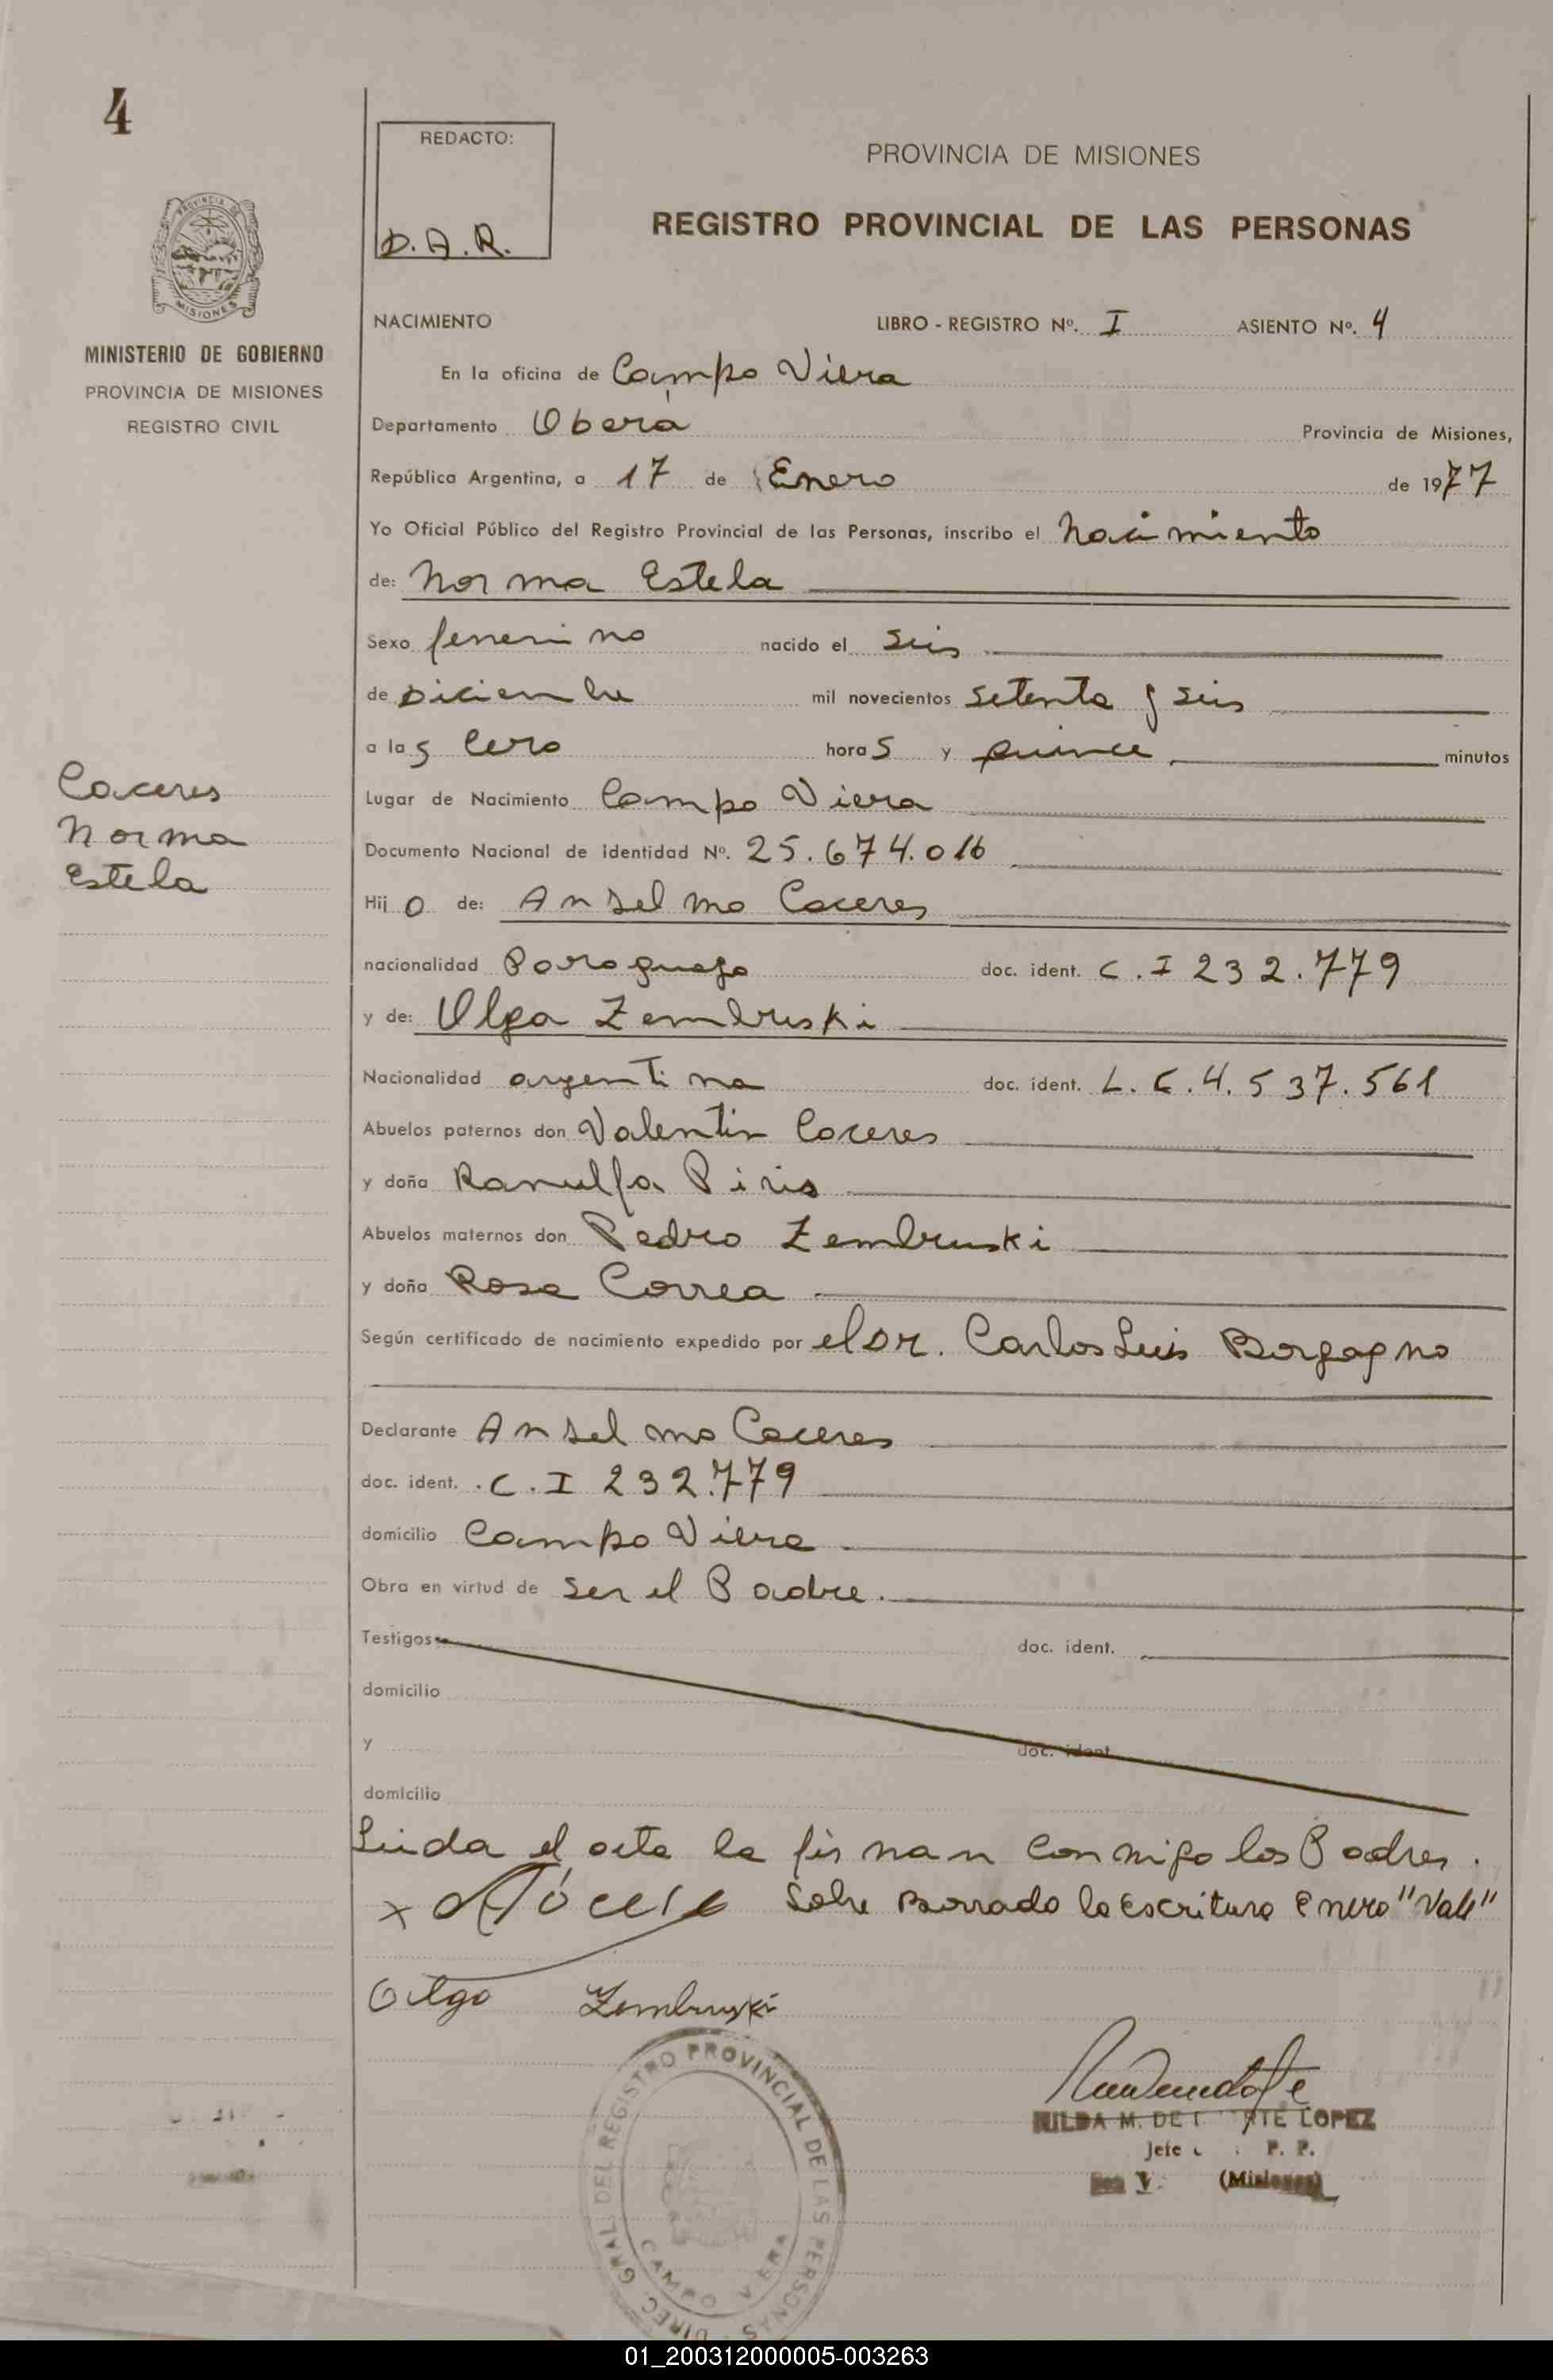 4
REDACTO:
D.A.R.
PROVINCIA DE MISIONES
REGISTRO PROVINCIAL DE LAS PERSONAS
PROVINCIA DE
MISIONES
MINISTERIO DE GOBIERNO
PROVINCIA DE MISIONES
REGISTRO CIVIL
NACIMIENTO LIBRO - REGISTRO Nº. I ASIENTO Nº. 4
En la oficina de Campo Viera
Departamento Oberá Provincia de Misiones,
República Argentina, a 17 de Enero de 1977
Yo Oficial Público del Registro Provincial de las Personas, inscribo el Nacimiento
de: Norma Estela
Sexo femenino nacido el seis
de Diciembre mil novecientos setenta y seis
a las cero horas y quince minutos
Caceres
Norma
Estela
Lugar de Nacimiento Campo Viera
Documento Nacional de identidad Nº. 25.674.016
Hijo de: Anselmo Caceres
nacionalidad Paraguayo doc. ident. C.I 232.779
y de: Olga Zembruski
Nacionalidad argentina doc. ident. L.C.4.537.561
Abuelos paternos don Valentin Caceres
y doña Ranulfa Piris
Abuelos maternos don Pedro Zembruski
y doña Rosa Correa
Según certificado de nacimiento expedido por el Dr. Carlos Luis Borgagno
Declarante Anselmo Caceres
doc. ident. C.I 232.779
domicilio Campo Viera
Obra en virtud de ser el Padre.
Testigos doc. ident.
domicilio
y doc. ident.
domicilio
Leida el acta la firman conmigo los Padres.
x Sobre Borrado la escritura Enero "Vale"
Olga Zembruski
DIREC. GRAL. DEL REGISTRO PROVINCIAL DE LAS PERSONAS
CAMPO VIERA
HILDA M. DE LOPEZ
Jefe P. P.
(Misiones)
01_200312000005-003263